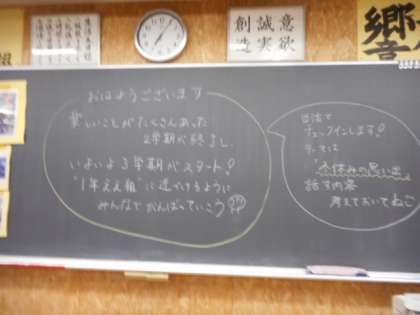 意欲
誠実
創造
響
おはようございます
楽しいことがたくさんあった
2学期が終了し、
いよいよ3学期がスタート！
"1年ええ組"に近づけるように
みんなでがんばっていこう
チェックインします！
テーマは
"冬休みの思い出"
話す内容
考えておいてね